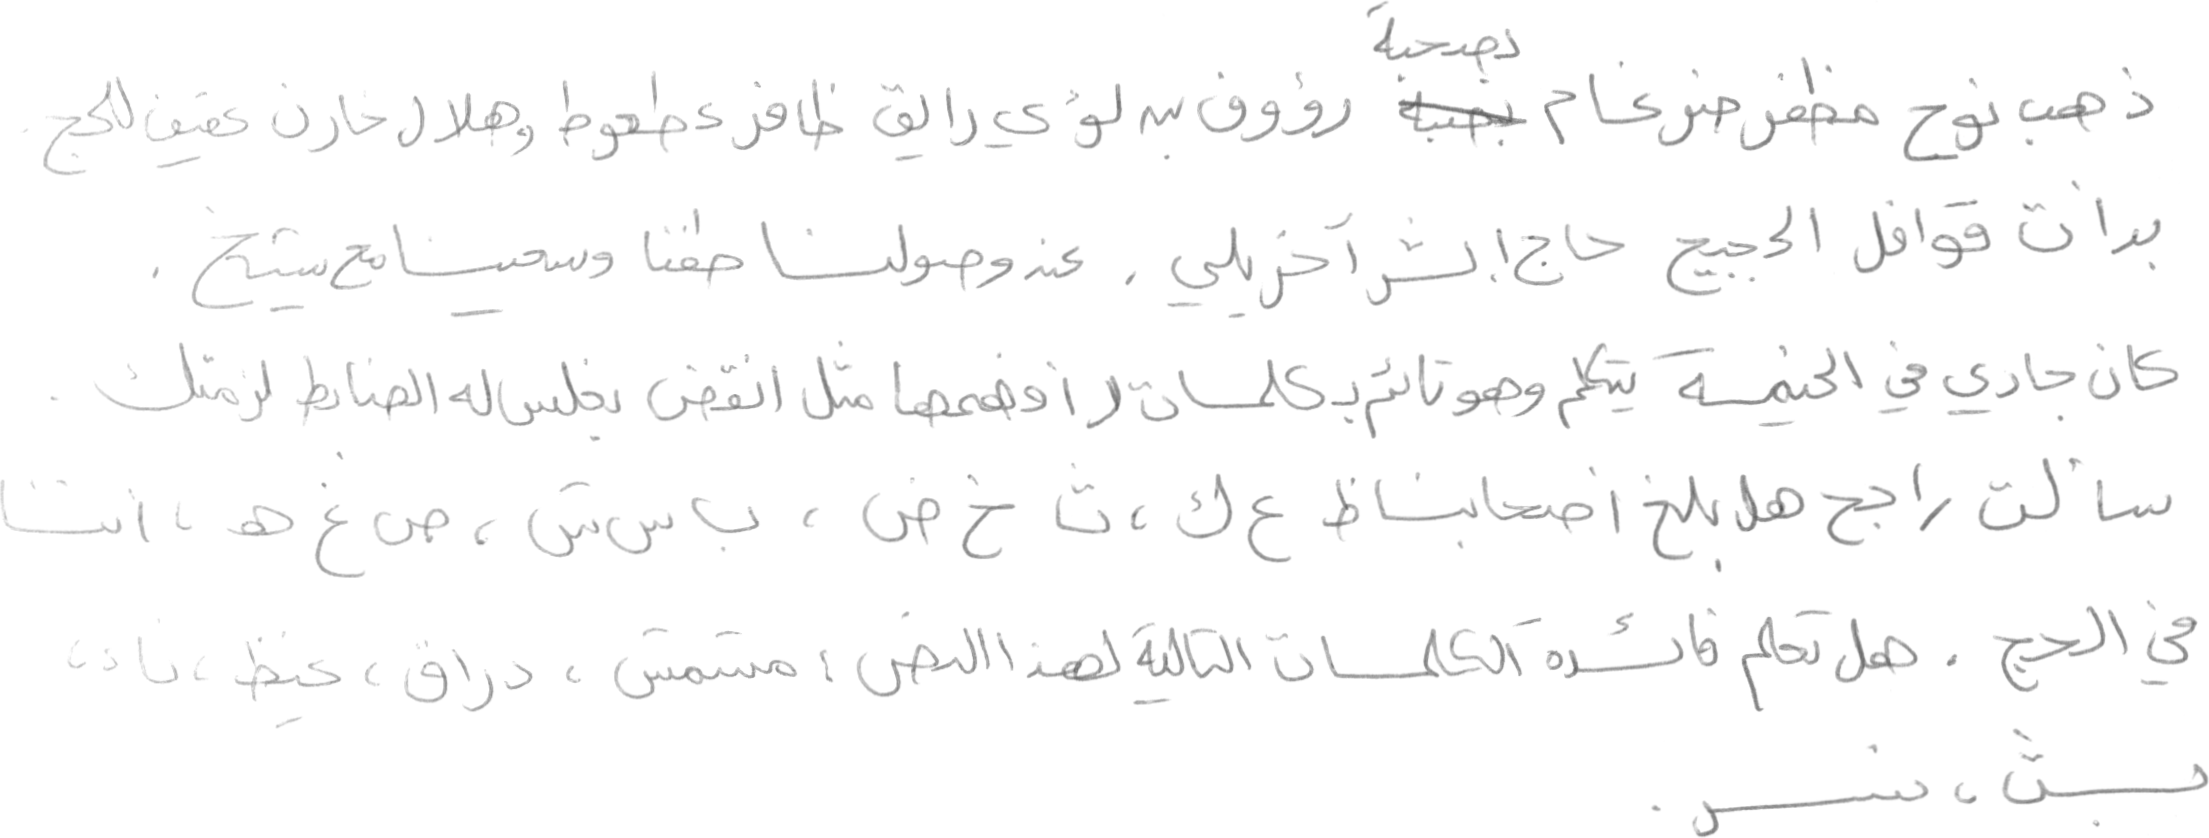 ذهب نوح مظفر ضرغام بصحبة رؤوف بن لؤي رائق ظافر عطعوط وهلال خازن عفيف للحج .
بدأت قوافل الحجيج حاج إبش آخر يلي . عند وصولنا طفنا وسعينا مع شيخ .
كان جاري في الخيمة يتكلم وهو نائم بكلمات لا أفهمها مثل انقض بغلس له الضابط لزمتك .
سألت راجح هل بلغ أصحابنا ظ ع ك ، ث خ ض ، ب س ش ، ص غ ه ،
في الحج . هل تعلم فائدة الكلمات التالية لهذا النص : مشمش ، دراق ، غيظ ، ناء ،
بث ،